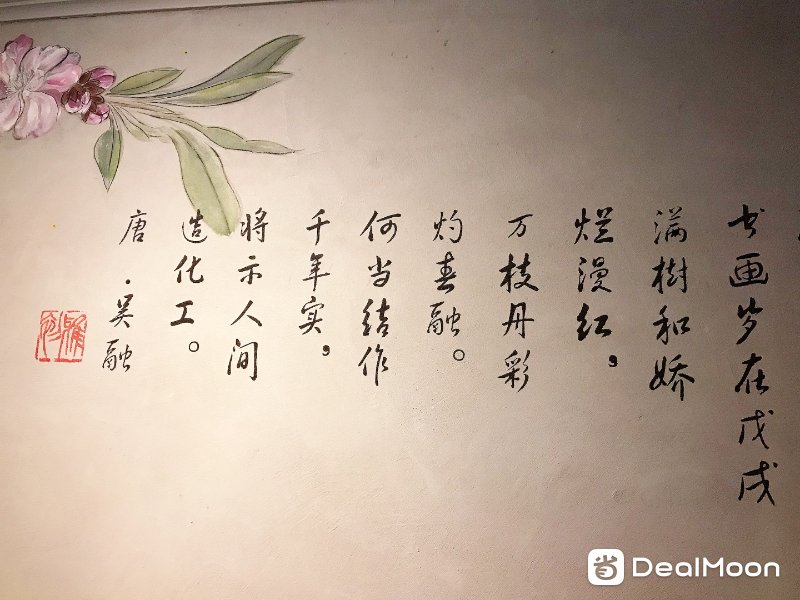 书画岁在戊戌
满樹和娇
烂漫红，
万枝丹彩
灼春融。
何当结作
千年实，
将示人间
造化工。
唐·吴融
DealMoon